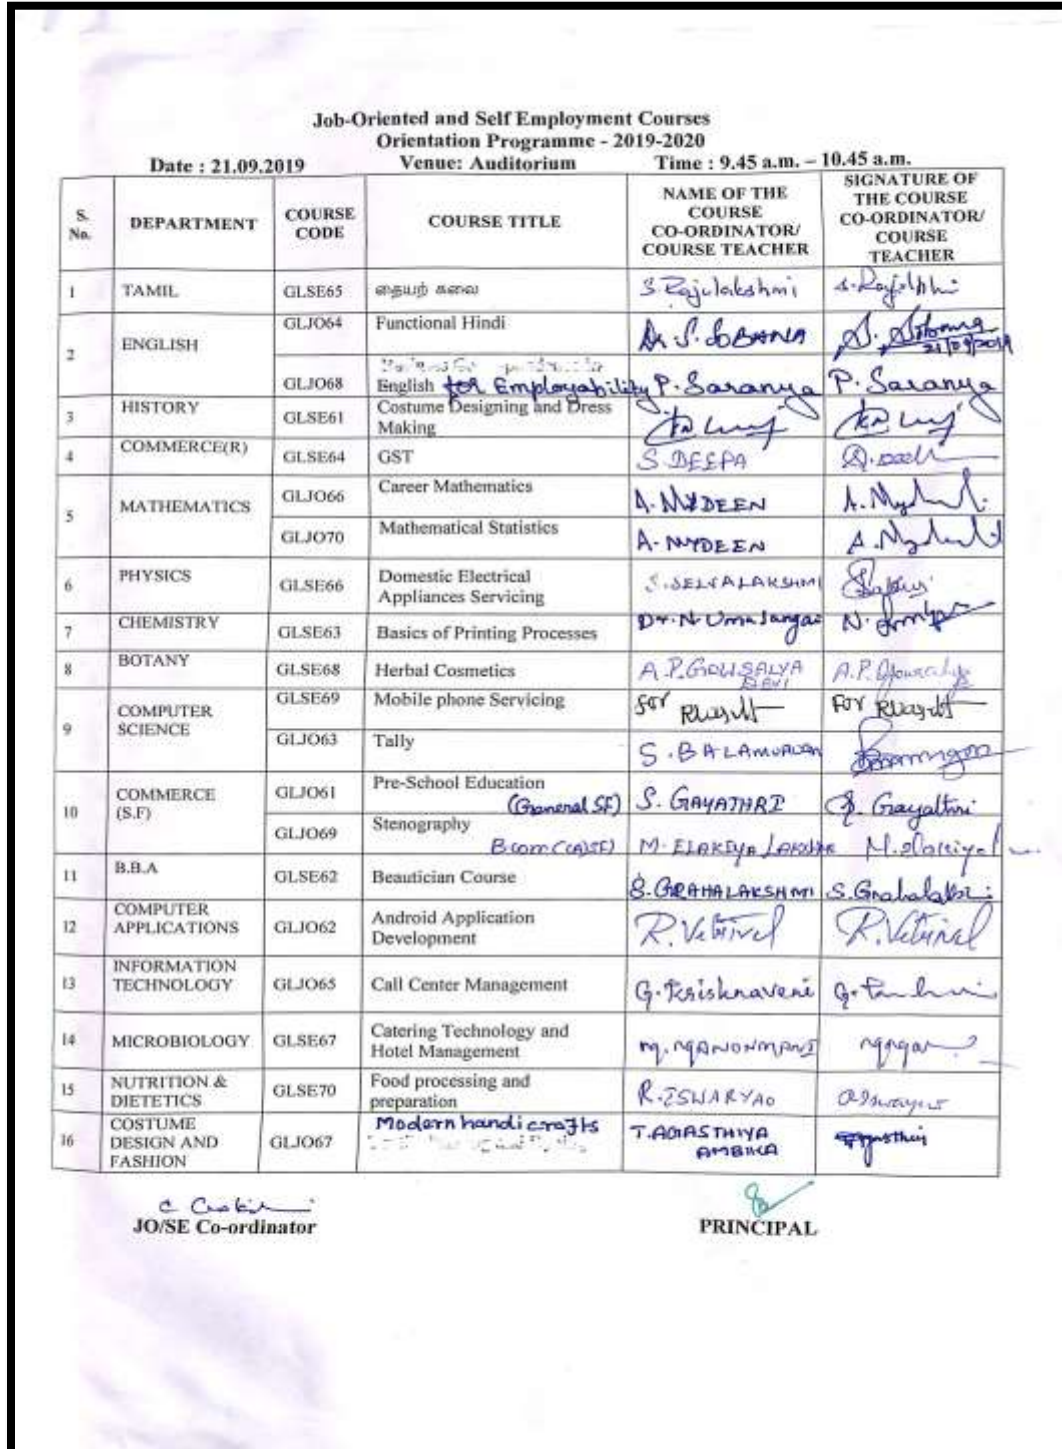 Job-Oriented and Self Employment Courses
Orientation Programme - 2019-2020
Date : 21.09.2019 Venue: Auditorium Time : 9.45 a.m. – 10.45 a.m.
S. No. DEPARTMENT COURSE CODE COURSE TITLE NAME OF THE COURSE CO-ORDINATOR/ COURSE TEACHER SIGNATURE OF THE COURSE CO-ORDINATOR/ COURSE TEACHER
1 TAMIL GLSE65 தையற் கலை S. Rajulakshmi
2 ENGLISH GLJO64 Functional Hindi Dr. S. SOBANA 21/09/2019
GLJO68 English for Employability P. Saranya P. Saranya
3 HISTORY GLSE61 Costume Designing and Dress Making
4 COMMERCE(R) GLSE64 GST S. DEEPA
5 MATHEMATICS GLJO66 Career Mathematics A. MYDEEN
GLJO70 Mathematical Statistics A. MYDEEN
6 PHYSICS GLSE66 Domestic Electrical Appliances Servicing S. SELVALAKSHMI
7 CHEMISTRY GLSE63 Basics of Printing Processes Dr. N. Uma
8 BOTANY GLSE68 Herbal Cosmetics A.P. GOWSALYA DEVI
9 COMPUTER SCIENCE GLSE69 Mobile phone Servicing for For
GLJO63 Tally S. BALAMURUGAN
10 COMMERCE (S.F) GLJO61 Pre-School Education (General SF) S. GAYATHRI S. Gayathri
GLJO69 Stenography B.com (CA)SF) M. ELAKIYA LAKSHMI
11 B.B.A GLSE62 Beautician Course S. GRAHALAKSHMI S. Grahalakshmi
12 COMPUTER APPLICATIONS GLJO62 Android Application Development R. Vetrivel R. Vetrivel
13 INFORMATION TECHNOLOGY GLJO65 Call Center Management G. Krishnaveni
14 MICROBIOLOGY GLSE67 Catering Technology and Hotel Management M. GANONMANI
15 NUTRITION & DIETETICS GLSE70 Food processing and preparation R. ISWARYA
16 COSTUME DESIGN AND FASHION GLJO67 Modern handicrafts T. AGASTHIYA AMBIKA
JO/SE Co-ordinator PRINCIPAL